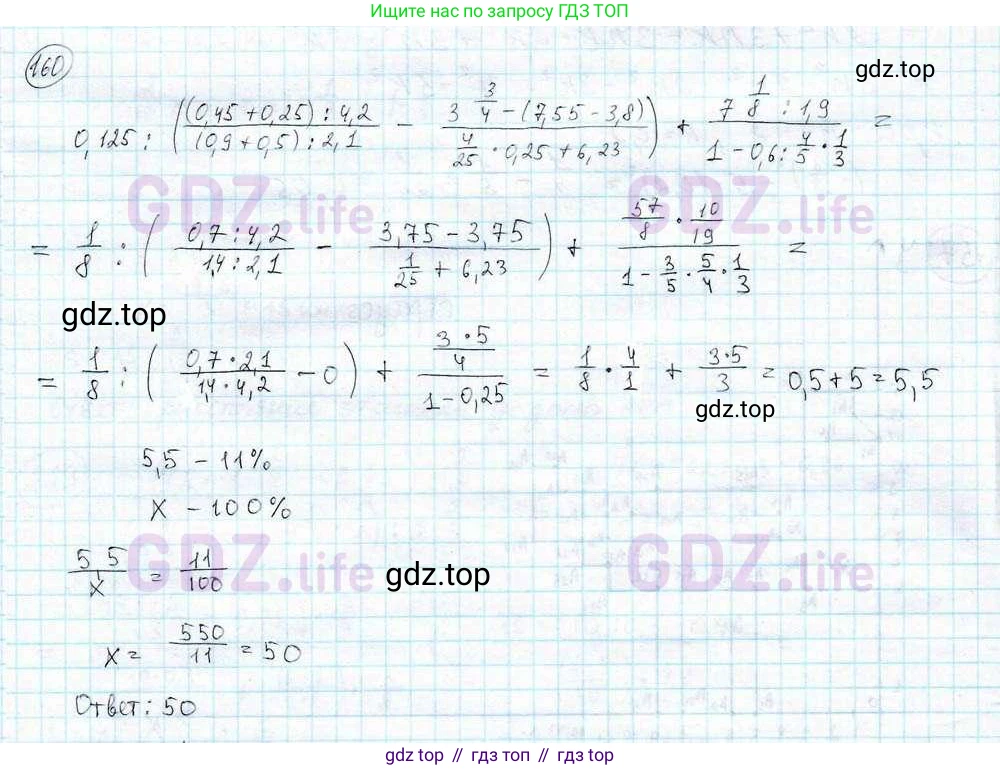 Ищите нас по запросу ГДЗ ТОП
160
gdz.top
0,125 : (((0,45 + 0,25) : 4,2)/((0,9 + 0,5) : 2,1) - (3 3/4 - (7,55 - 3,8))/(4/25 · 0,25 + 6,23)) + (7 1/8 : 1,9)/(1 - 0,6 : 4/5 · 1/3) =
GDZ.life GDZ.life
= 1/8 : ((0,7 : 4,2)/(1,4 : 2,1) - (3,75 - 3,75)/(1/25 + 6,23)) + (57/8 · 10/19)/(1 - 3/5 · 5/4 · 1/3) =
gdz.top
= 1/8 : ((0,7 · 2,1)/(1,4 · 4,2) - 0) + (3 · 5/4)/(1 - 0,25) = 1/8 · 4/1 + 3·5/3 = 0,5 + 5 = 5,5
gdz.top
5,5 - 11%
x - 100%
5,5/x = 11/100
GDZ.life gdz.top GDZ.life
x = 550/11 = 50
Ответ: 50
gdz top // гдз топ // gdz.top